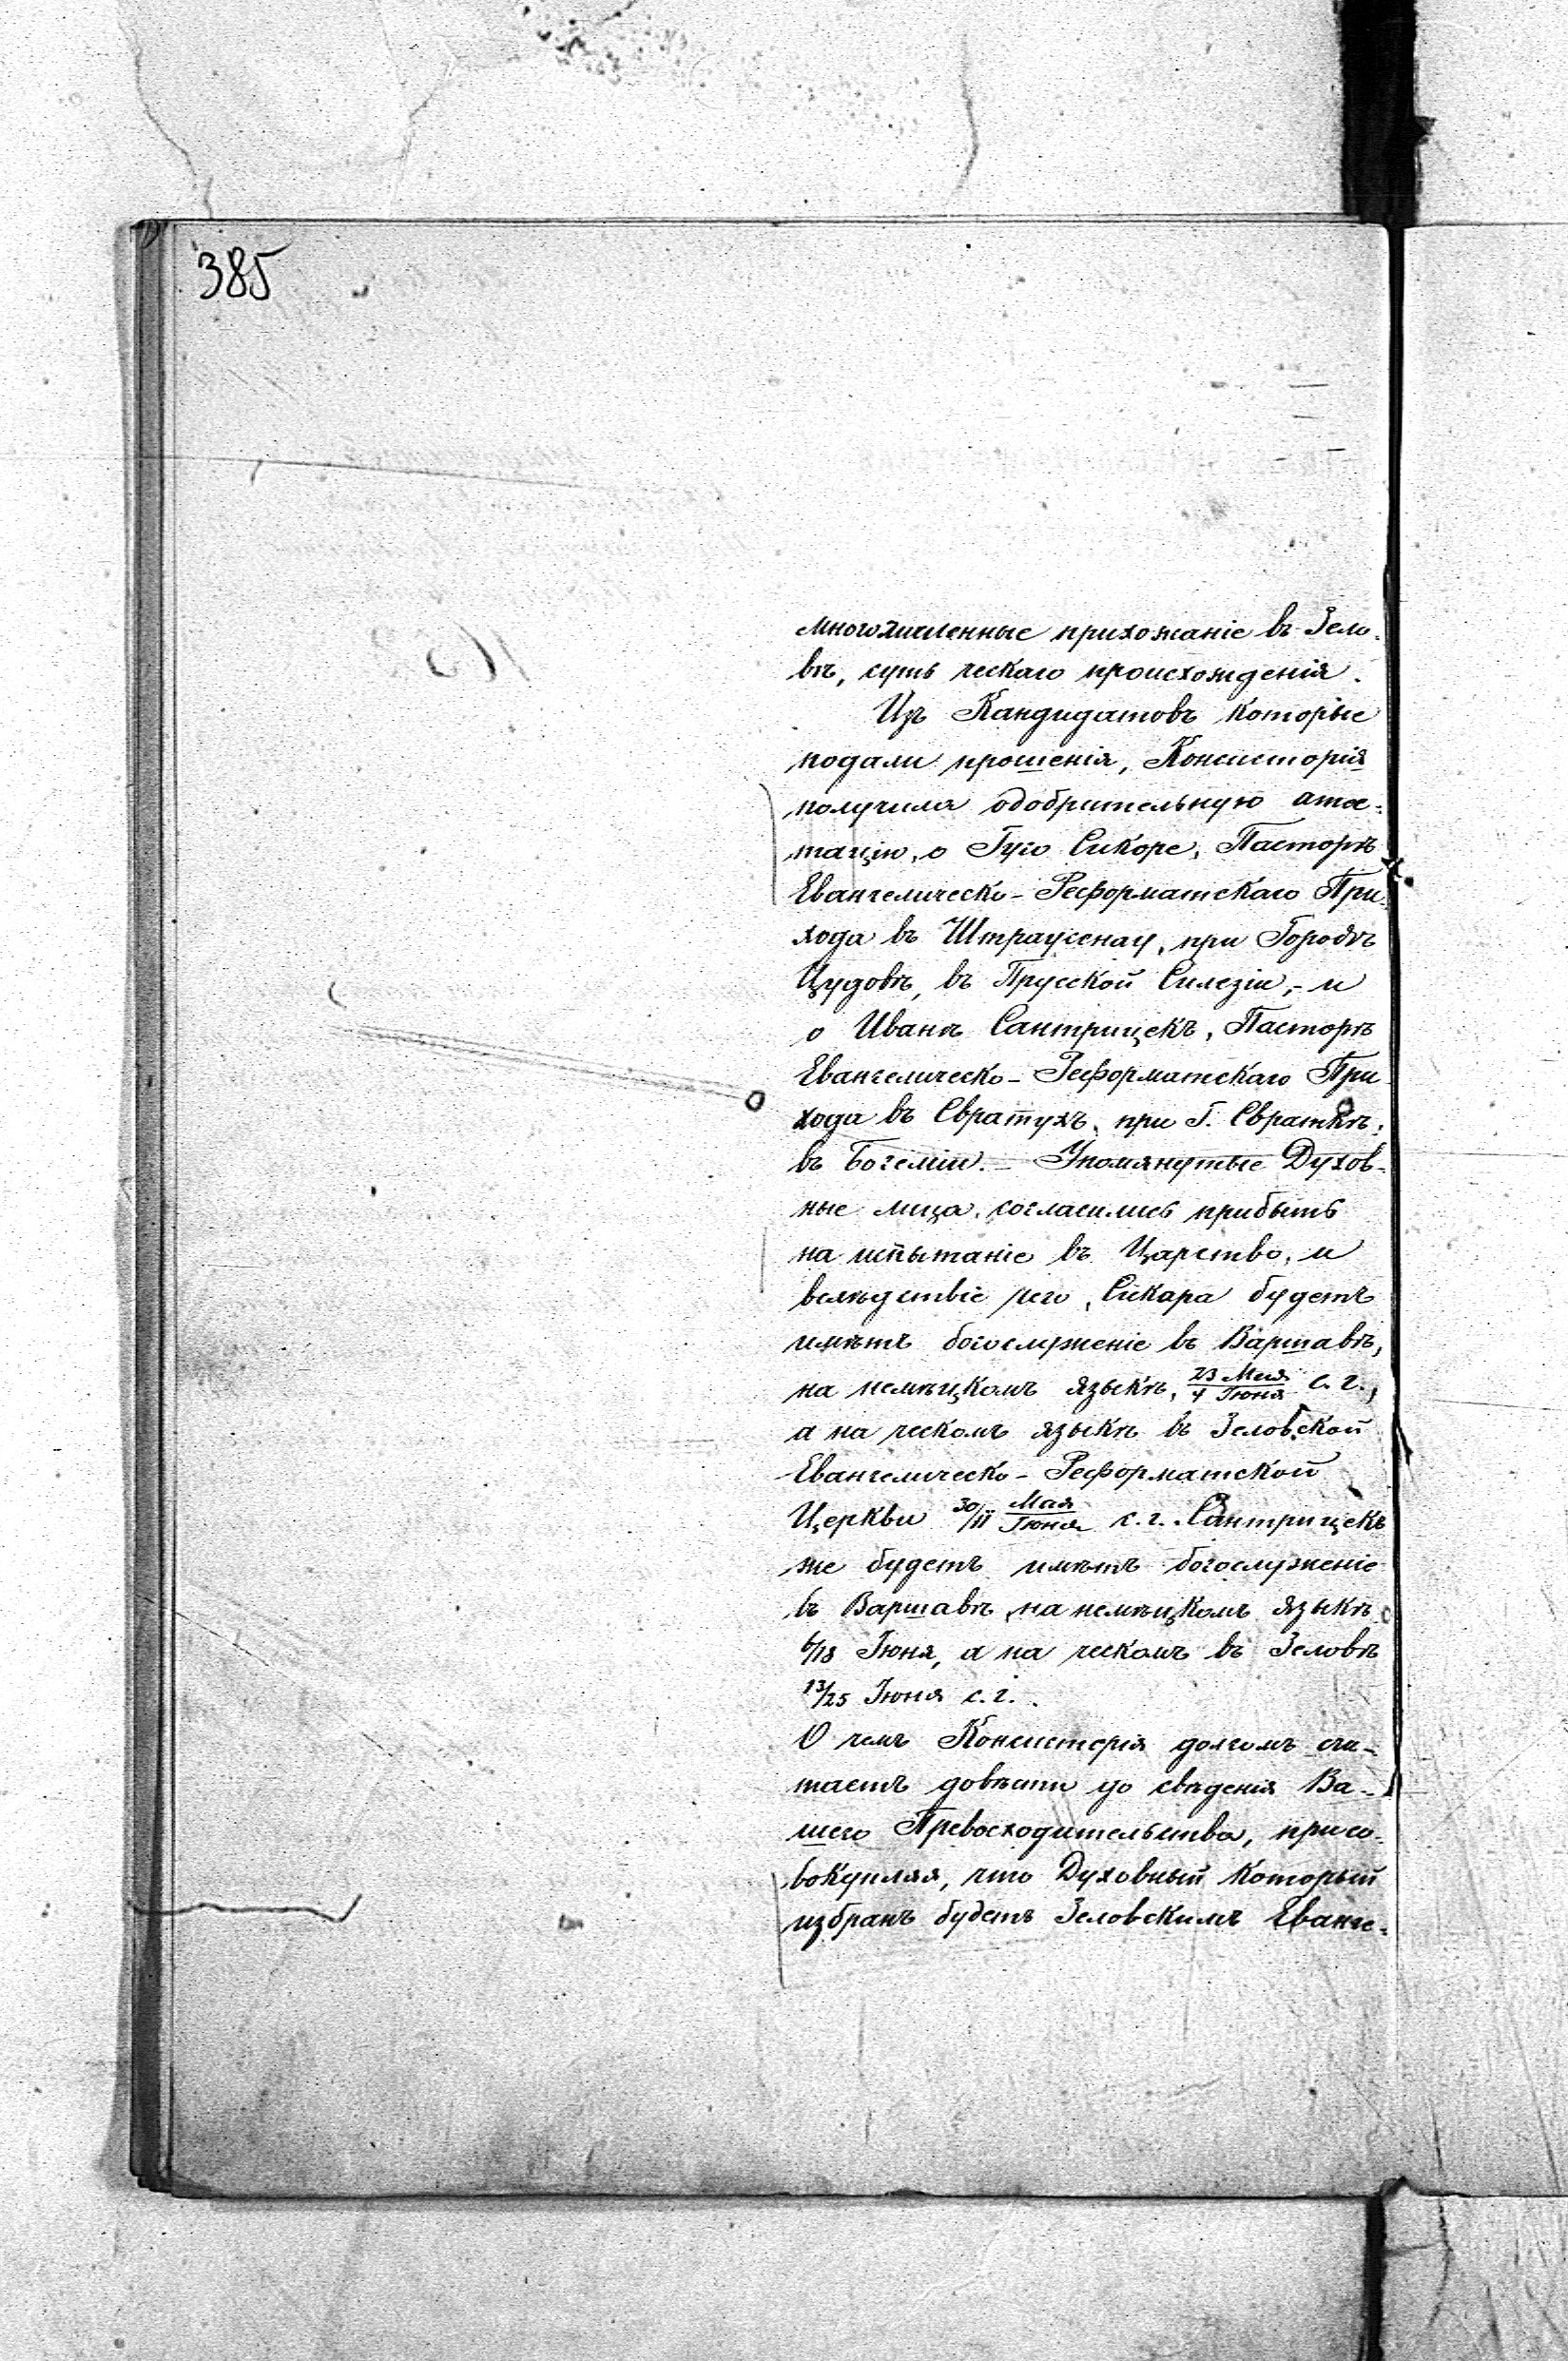 385
многочисленные прихожаніе въ Зело-
вѣ, суть ческаго происхожденія.
Изъ Кандидатовъ которые
подали прошенія, Консисторія
получила одобрительную атте-
стацію, о Гуго Сикоре, Пасторѣ
Евангелическо-Реформатскаго При-
хода въ Штраусенау, при Городѣ
Цудовѣ, въ Прусской Силезіи,- и
о Иванѣ Сантрицекъ, Пасторѣ
Евангелическо-Реформатскаго При-
хода въ Свратухъ, при Г. Свраткѣ,
въ Богеміи. - Упомянутые Духов-
ные лица, согласились прибыть
на испытаніе въ Царство, и
вслѣдствіе чего, Сикара будетъ
имѣть богослуженіе въ Варшавѣ,
на немѣцкомъ языкѣ, 23 Мая/4 Іюня с. г.,
а на ческомъ языкѣ въ Зеловской
Евангелическо-Реформатской
Церкви 30/11 Мая/Іюня с. г. Сантрицекъ
же будетъ имѣть богослуженіе
въ Варшавѣ, на немѣцкомъ языкѣ
6/18 Іюня, а на ческомъ въ Зеловѣ
13/25 Іюня с. г.
О чемъ Консисторія долгомъ счи-
таетъ довѣсти до свѣденія Ва-
шего Превосходительства, присо-
вокупляя, что Духовный который
избранъ будетъ Зеловскимъ Еванге-